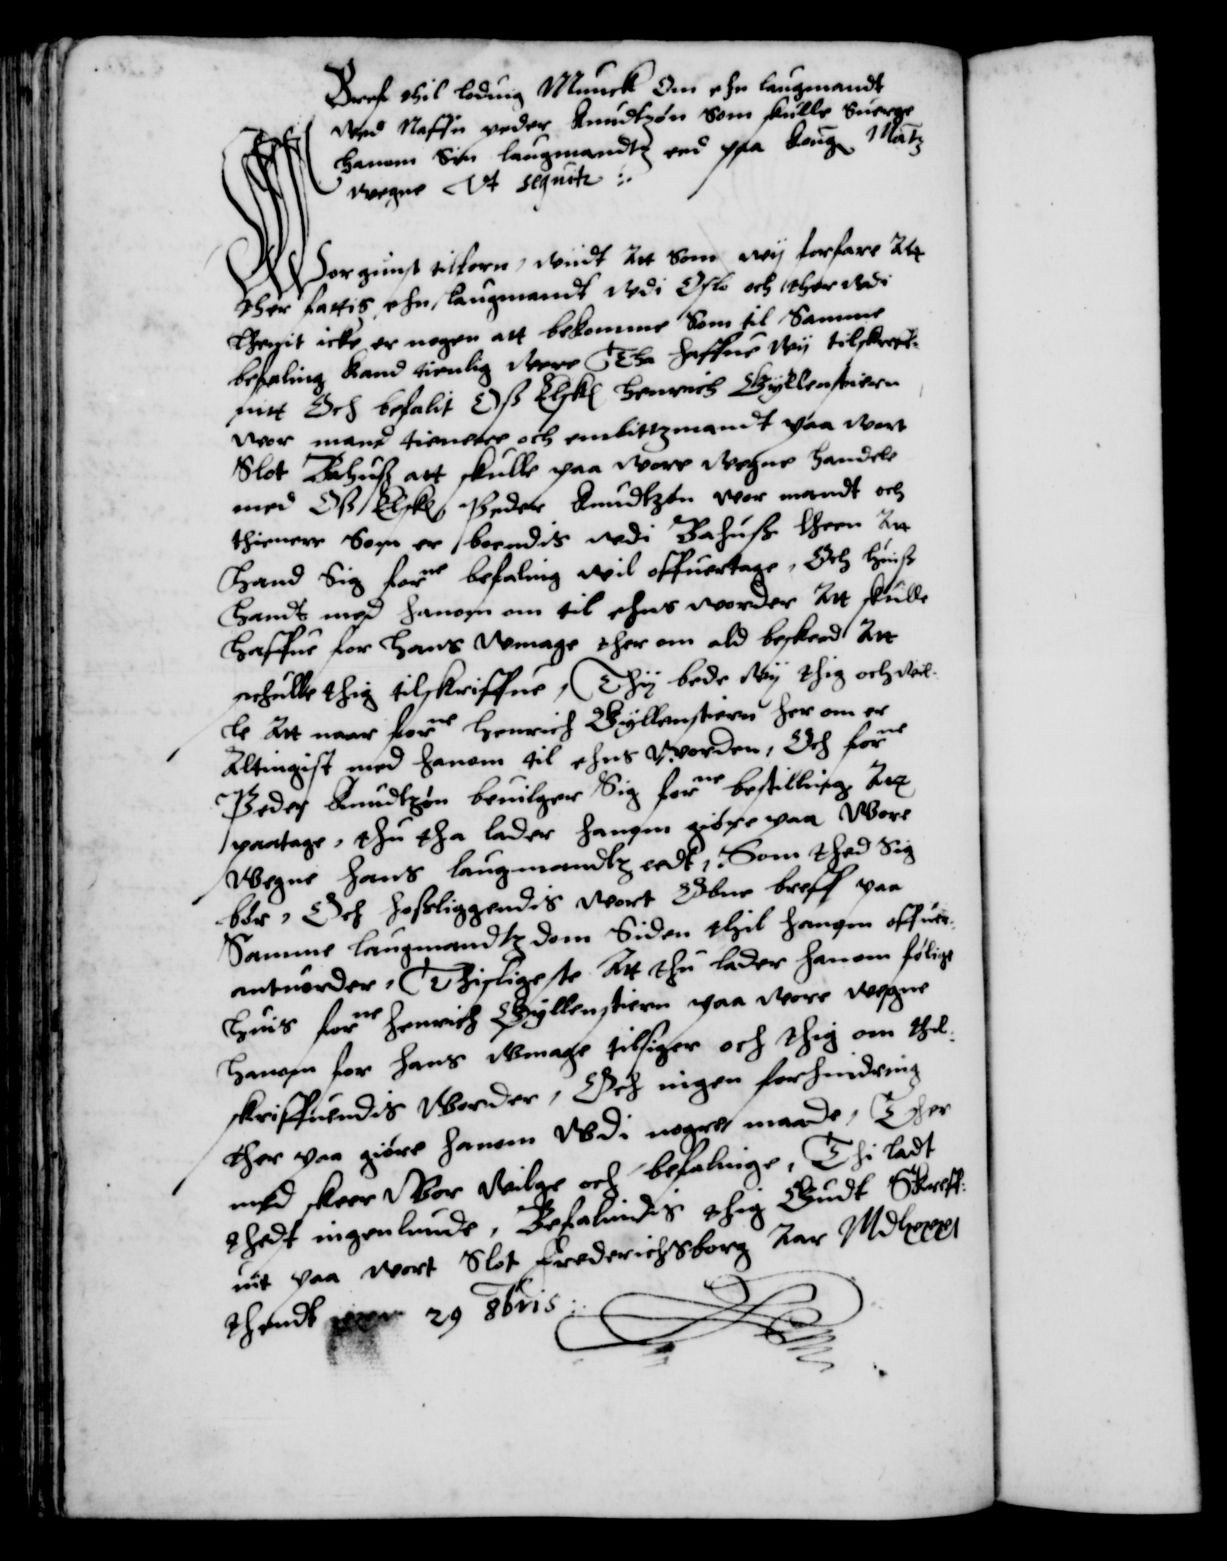 Breff thil loduig Munck Om ehn laugmandt
wed Naffn peder knudtzøn Som skulle Suerge
hanom Sin laugmandtz eed paa kong Matz
wegne Vt sequitr :.
Wor gunst tilforn, wiidt Att Som wij forfare Att
ther fattis ehn laugmandt wdi Oslo och ther wdi
icke er nogen att bekomme Som til Samme
befaling kand tienlig were Tha haffue wij tilskreff-
uitt Och befalit Oss Elskl henrich Gyllenstiern
wor mand tienere och embittzmandt paa wort
Slot Bahuss att skulle paa wore wegne handele
med Oss Elskl Peder knudtzøn wor mandt och
thienere Som er boendis wdi Bahuss Att
hand Sig forne befaling wil offuertage, Och huiss
handt med hanom om til ehns worder Att skulle
haffue for hans Wmage ther om ald beskeed Att
schulle thig tilskriffue, Thij bede wij thig och wel-
le Att naar forne henrich Gyllenstiern her om er
Altingist med hanom til ehns worden, Och forne
Peder knudtzøn beuilger Sig forne bestilling Att
paatage, thu tha lader hanom giøre paa Wore
Wegne hans laugmandtz eedt, Som thed Sig
bør, Och hossliggendis wort Obne breff paa
Samme laugmandtzdom Siden thil hanom offuer-
antuorder, Thisligeste Att thu lader hanom følige
huis forne henrich Gyllenstiern paa wore wegne
hanom for hans wmage tilsiger och thig om thil-
skriffuendis Worder, Och ingen forhindring
ther paa giøre hanom wdi nogre maade, Ther
med skeer Wor Wilge och befalinge, Thi ladt
thedt ingenlunde, Befalindis thig Gudt Skreff-
uit paa wort Slot frederichsborg Aar Mdlxxxi
thendt 29 8bris :.